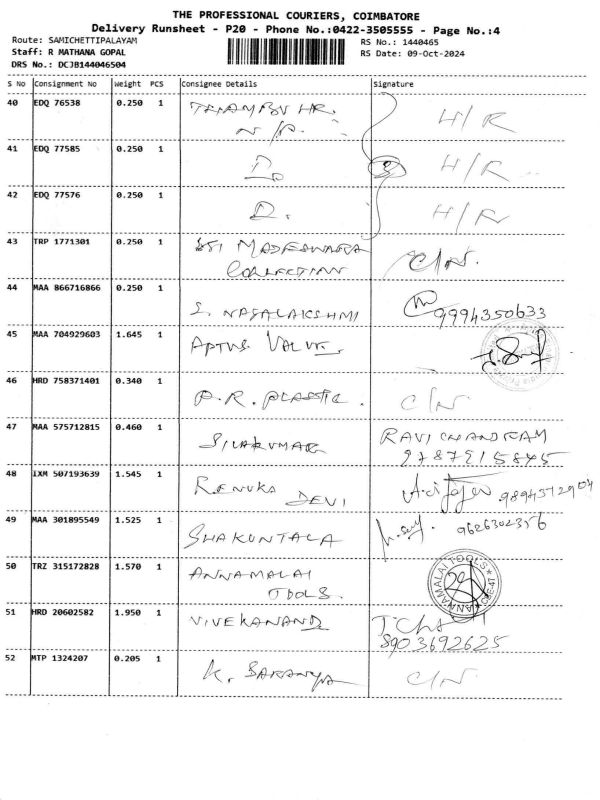 THE PROFESSIONAL COURIERS, COIMBATORE
Delivery Runsheet - P20 - Phone No.:0422-3505555 - Page No.:4
Route: SAMICHETTIPALAYAM
Staff: R MATHANA GOPAL
DRS No.: DCJB144046504
RS No.: 1440465
RS Date: 09-Oct-2024
S No Consignment No Weight PCS Consignee Details Signature
40 EDQ 76538 0.250 1 H/R
N/P.
41 EDQ 77585 0.250 1 D. H/R
42 EDQ 77576 0.250 1 D. H/R
43 TRP 1771301 0.250 1 SRI MADESWARA C/N.
COLLECTION
44 MAA 866716866 0.250 1 S. NAGALAKSHMI 9994350633
45 MAA 704929603 1.645 1 APTUS VALUE.
46 HRD 758371401 0.340 1 P.R. PLASTIC. C/N.
47 MAA 575712815 0.460 1 SIVAKUMAR RAVICHANDRAM
9787915845
48 IXM 507193639 1.545 1 RENUKA DEVI 9894512904
49 MAA 301895549 1.525 1 SHAKUNTALA 9626302356
50 TRZ 315172828 1.570 1 ANNAMALAI
TOOLS.
ANNAMALAI TOOLS * CBE-47 *
51 HRD 20602582 1.950 1 VIVEKANAND
8903692625
52 MTP 1324207 0.205 1 K. SARANYA C/N